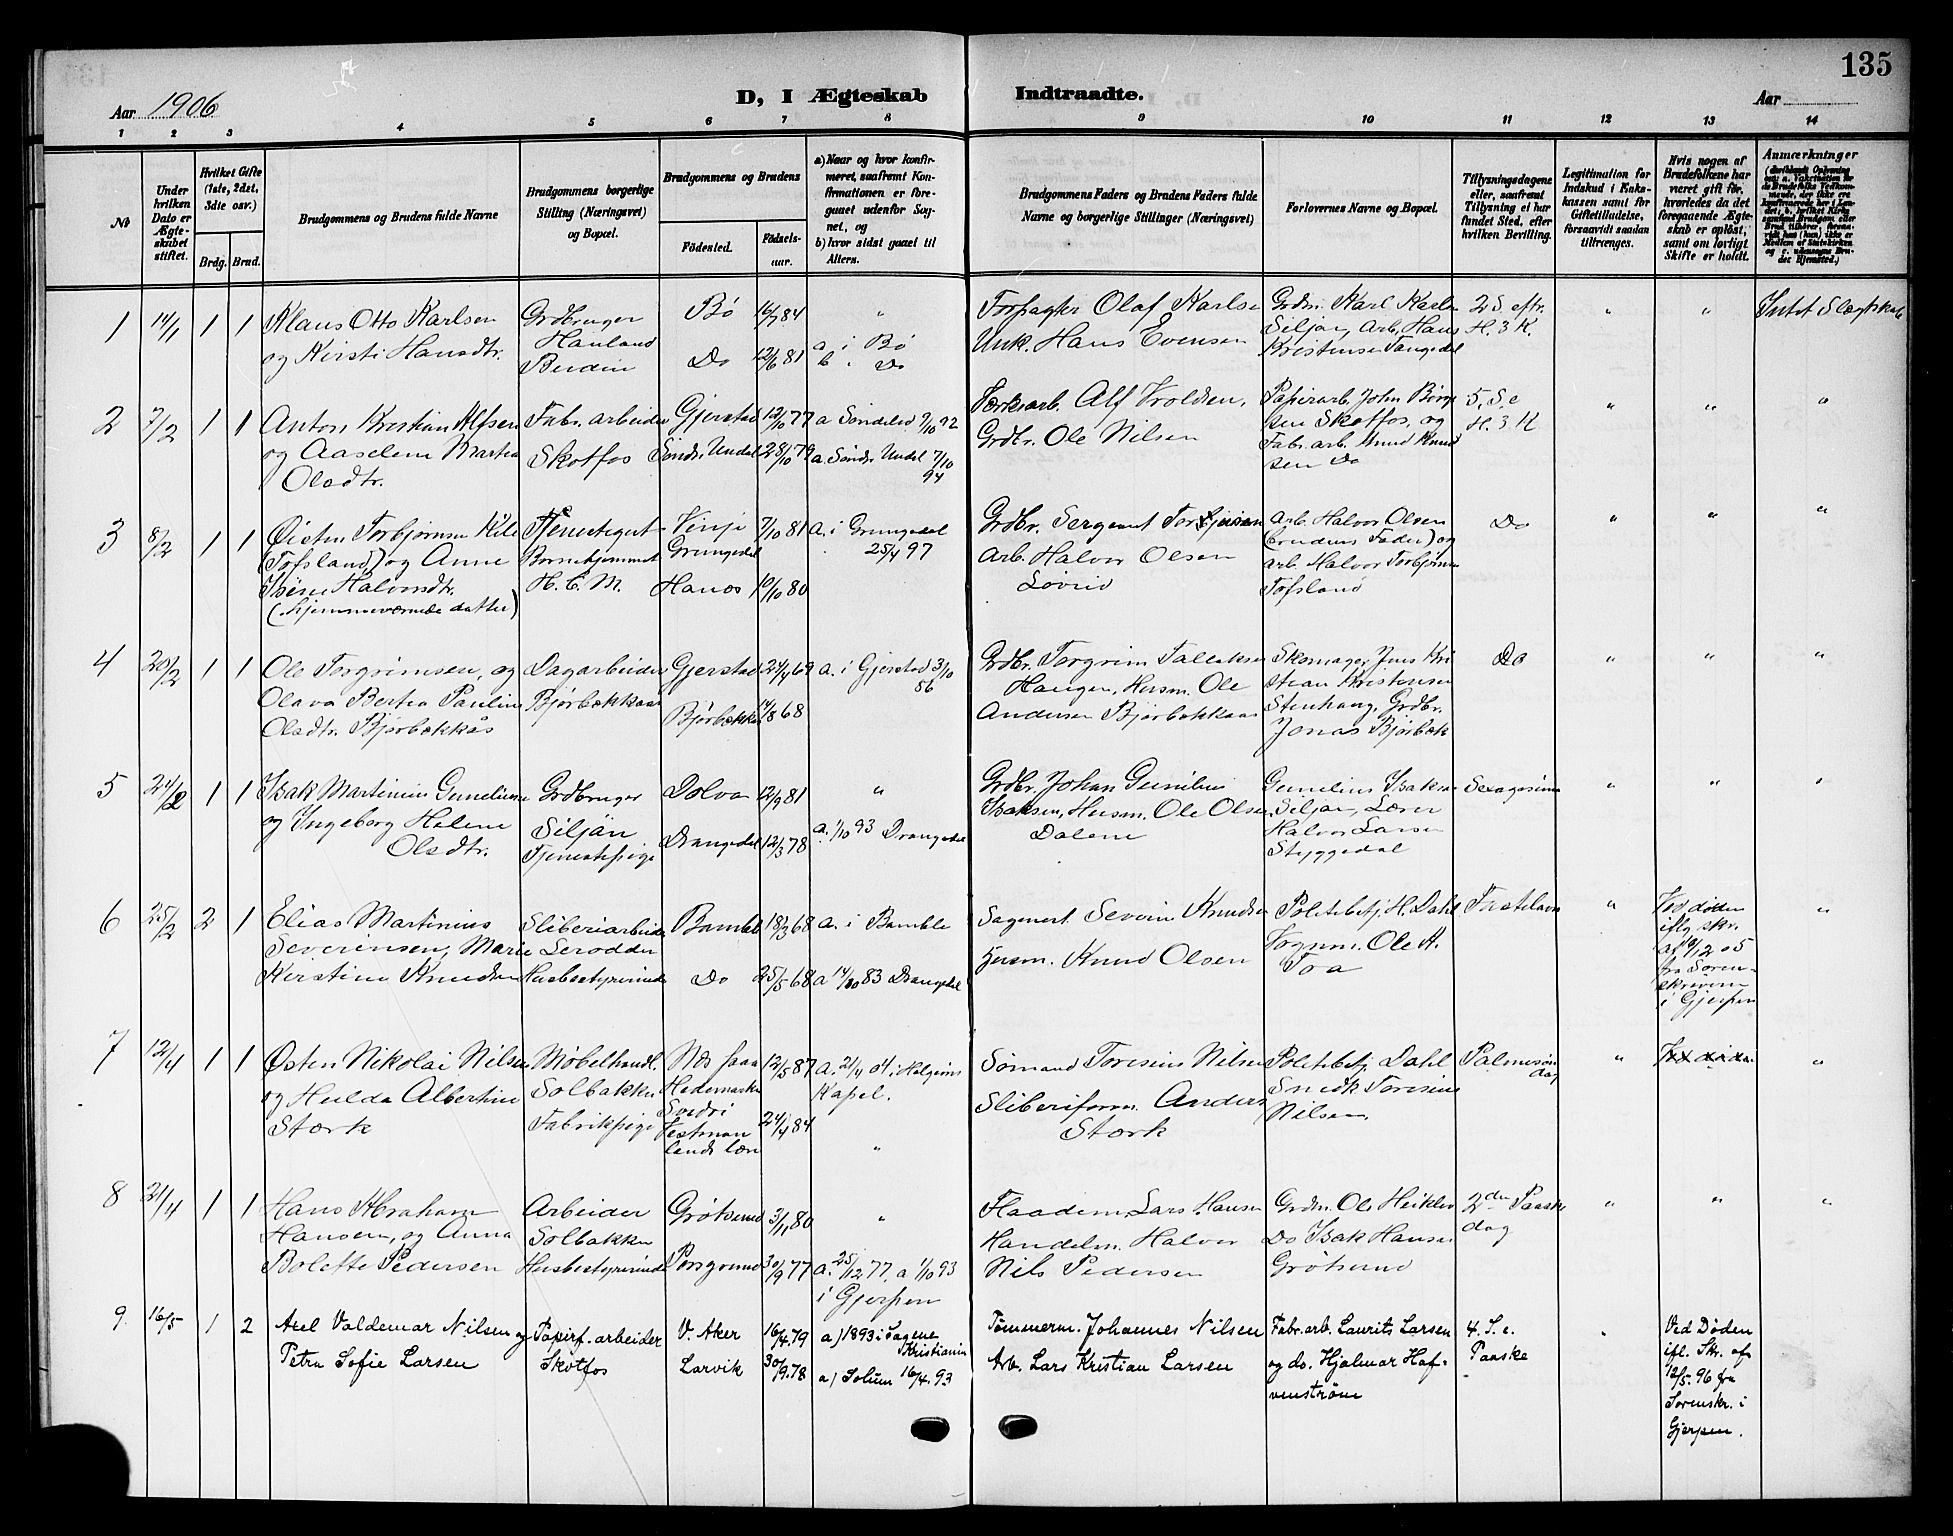 135
Aar 1906
D, I Ægteskab Indtraadte.
Aar
1 2 3 4 5 6 7 8 9 10 11 12 13 14
№
Under hvilken Dato er Ægteskabet stiftet.
Hvilket Gifte (1ste, 2det, 3die osv.)
Brdg. Brud.
Brudgommens og Brudens fulde Navne
Brudgommens borgerlige Stilling (Næringsvei) og Bopæl.
Brudgommens og Brudens
Fødested.
Fødselsaar.
a) Naar og hvor konfirmeret, saafremt Konfirmationen er foregaaet udenfor Sognet, og
b) hvor sidst gaaet til Alters.
Brudgommens Faders og Brudens Faders fulde Navne og borgerlige Stillinger (Næringsvei)
Forlovernes Navne og Bopæl.
Tillysningsdagene eller, saafremt Tillysning ei har fundet Sted, efter hvilken Bevilling.
Legitimation for Indskud i Enkekassen samt for Giftetilladelse, forsaavidt saadan tiltrænges.
Hvis nogen af Brudefolkene har været gift før, hvorledes da det foregaaende Ægteskab er opløst, samt om lovligt Skifte er holdt.
Anmærkninger
1 14/1 1 1
Klaus Otto Karlsen
og Kirsti Hansdtr.
Grdbruger
Bø 16/7 84 "
Do 12/6 81 a. i Bø
b. i Do
Forpagter Olaf Karlse
Unk. Hans Evensen
Grdm. Karl Karls
Siljan, Arb. Hans
Kristensen Tangedal
2 S. eftr.
H. 3 K.
" "
Intet Slægtskab
2 7/2 1 1
Anton Kristian Alfsen
og Aaselene Martea
Olsdtr.
Fabr. arbeider
Skotfos
Gjerstad 12/10 77 a Søndeled 9/10 92
Søndr. Undal 28/10 79 a. Søndr. Undal 7/10
94
Værksarb. Alf Voldsen,
Grdbr. Ole Nilsen
Papirarb. John Børge
sen Skotfos, og
Fabr. arb. Knud Knud
sen Do
5. S. e
H. 3 K
" " "
3 8/2 1 1
Øisten Torbjørnsen Kile
(Tofsland) og Anne
Halvorsdtr.
(hjemmeværende datter)
H. E. M.
Vinje
Grungedal 7/10 81 a. i Grungedal
25/4 97
10/10 80
Grdbr. Sergeant Torbjørnsen
Arb. Halvor Olsen
Løvlid
Arb. Halvor Olsen
(brudens Fader) og
arb. Halvor Torbjørns
Tofsland
Do
" " "
4 20/2 1 1
Ole Torgrimsen, og
Olava Bertea Pauline
Olsdtr. Bjørbækkås
Dagarbeider
Bjørbækkaas
Gjerstad 24/4 69 a. i Gjerstad 3/10
86
Bjørbækkås 14/8 68
Grdbr. Torgrim Talleksen
Haugen, Husm. Ole
Andersen Bjørbækkaas
Skomager Jens Kri
stian Kristensen
Stenhaug, Grdbr.
Jonas Bjørbæk
Do
" " "
5 24/2 1 1
Isak Martinius Gunelius
og Ingeborg Helene
Olsdtr.
Grdbruger
Siljan
Tjenestepige
Dolva 12/9 81 "
Drangedal 12/3 78 a. 1/10 93 Drangedal
Grdbr. Johan Gunelius
Isaksen, Husm. Ole Olsen
Dalene
Gunelius Isaksen
Siljan, Lærer
Halvor Larsen
Styggedal
Sexagesima
" " "
6 25/2 2 1
Elias Martinius
Severensen, Marie
Kirstine Knudsen
Sliberiarbeider
Husbestyrerinde
Bamble 18/3 68 a. i Bamble
Do 25/5 68 a 14/10 83 Drangedal
Sagmest. Severin Knudsen
Husm. Knud Olsen
Politibetj. H. Dahl
Vognm. Ole A.
Foa
Fastelavn
"
Ved døden
iflg skr.
af 18/12 05
fra Soren-
skriveren
i Gjerpen
"
7 12/4 1 1
Østen Nikolai Nilsen
og Hulda Albertine
Stærk
Møbelhandl.
Solbakken
Fabrikpige
Næs paa
Hedemarken 12/5 87 a. 21/4 01 i Helgens
Kapel.
Søndri
Vestman
lands læn 24/4 84 "
Sømand Toresius Nilsen
Sliberiform. Anders
Stærk
Politibetj. Dahl
Snedk. Toresius
Nilsen
Palmesøn
dag
" "
8 21/4 1 1
Hans Abraham
Hansen, og Anna
Bolette Pedersen
Arbeider
Solbakken
Husbestyrerinde
Grøtsund 3/11 80 "
Porsgrund 30/9 77 a. 25/12 77, a 1/10 93
i Gjerpen
Flaadem. Lars Hansen
Handelsm. Halvor
Nils Pedersen
Grdm. Ole Heiklev
Do Isak Hansen
Grøtsund
2den Paaske
dag
" " "
9. 16/5 1 2
Axel Valdemar Nilsen og
Petra Sofie Larsen
Papirf. arbeider
Skotfos
V. Aker 16/4.79 a) 1893 i Sagene
Kristiania
Larvik 30/9.78 a) Solum 16/4.93
Tømmerm. Johannes Nilsen
Arb. Lars Kristian Larsen
Fabr. arb. Laurits Larsen
og do. Hjalmar Haf-
venstrøm
4. S. e.
Paaske
Ved Døden
ifl. Skr. af
12/5. 96 fra
Sorenskr. i
Gjerpen.